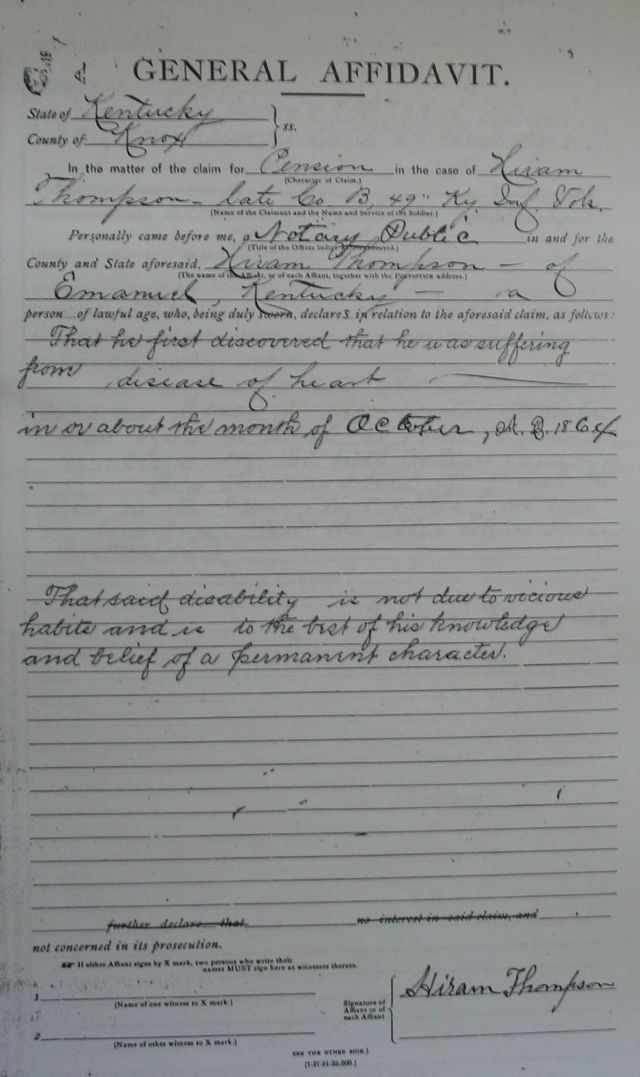 GENERAL AFFIDAVIT.
State of Kentucky
County of Knox } ss.
In the matter of the claim for Pension in the case of Hiram
(Character of Claim.)
Thompson - late Co B, 49" Ky Inf. Vols.
(Name of the Claimant and the Name and Service of the Soldier.)
Personally came before me, a Notary Public in and for the
(Title of the Officer being
County and State aforesaid, Hiram Thompson of
(The name of the Affiant, or of each Affiant, together with the Postoffice address.)
Emanuel, Kentucky a
person of lawful age, who, being duly sworn, declares in relation to the aforesaid claim, as follows:
That he first discovered that he was suffering
from disease of heart
in or about the month of October, A.D. 1864
That said disability is not due to vicious
habits and is to the best of his knowledge
and belief of a permanent character.
further declare that no interest in said claim, and
not concerned in its prosecution.
If either Affiant signs by X mark, two persons who write their
names MUST sign here as witnesses thereto.
1
(Name of one witness to X mark.)
2
(Name of other witness to X mark.)
Signature of
Affiant or of
each Affiant
Hiram Thompson
SEE THE OTHER SIDE.)